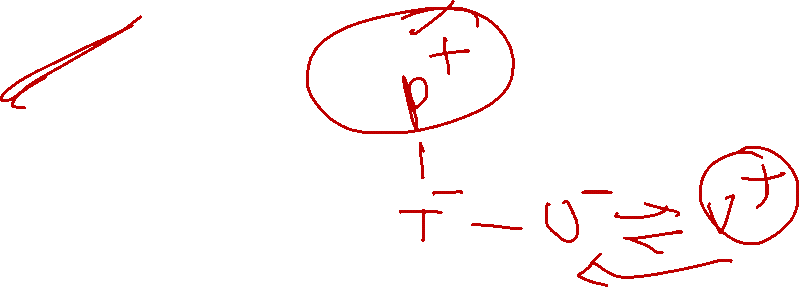 p⁺
|
T⁻ — U⁻ ⇌ v⁺